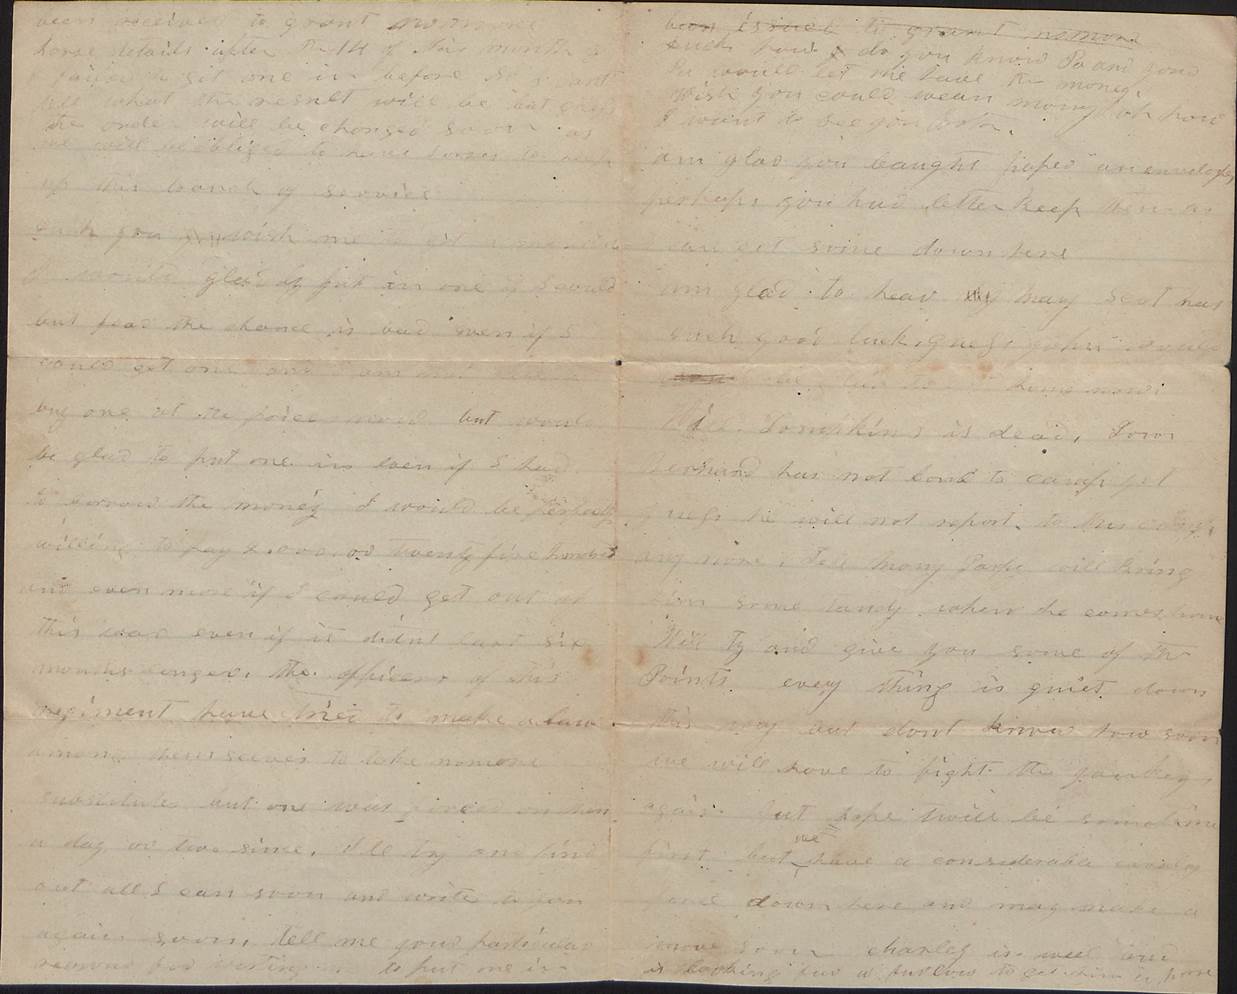 been received to grant no more
horse details after the 14 of this month &
I failed to get one in before so I cant
tell what the result will be but guess
the order will be changed soon as
we will be obliged to have horses to keep
up this branch of service
such you wish me to get a substitute
I would gladly put in one if I could
but fear the chance is bad even if I
could get one and I am not able to
buy one at the price now but would
be glad to put one in even if I had
to borrow the money I would be perhaps
willing to pay 2,000. or twenty five hundred
and even more if I could get out of
this war even if it didnt last six
months longer. the officers of this
regiment have tried to make a law
among themselves to take nomore
substitutes but one was forced on them
a day or two since. I'll try and find
out all I can soon and write to you
again soon, tell me your particular
reasons for wishing to put one in
been issued to grant nomore
such how do you know Pa and your
Pa would let me have the money.
Wish you could wean mony oh how
I want to see you both.
am glad you baught paper an envelopes
perhaps you had better keep them as
can get some down here
am glad to hear my may Scot has
such good luck, guess john would
like to be home now
Tompkins is dead. Tom
has not come to camp yet
guess he will not report to this comp.
any more. Tell mony Papa will bring
him some candy when he comes home
Will try and give you some of the
Points. every thing is quiet down
this way but dont know how soon
we will have to fight the yankeys
again. but hope twill be sometime
first but we have a considerable cavalry
force down here and may make a
move soon charley is well and
is looking for a furlow to get him a horse